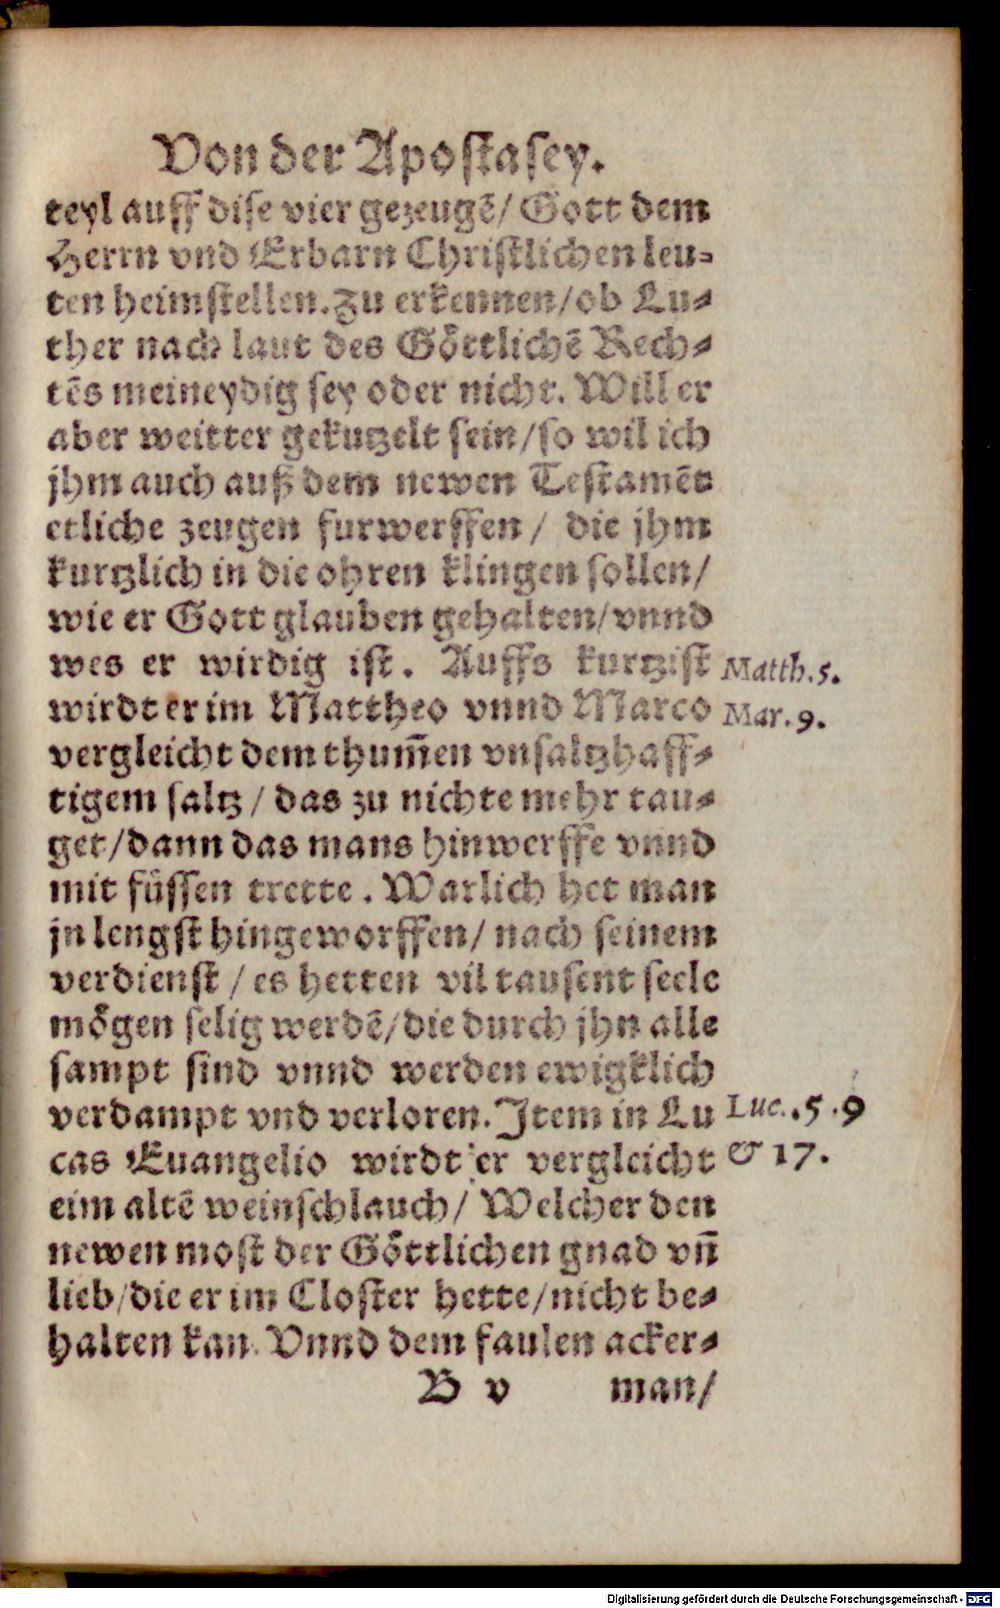 Von der Apostasey.
teyl auff dise vier gezeugē/ Gott dem
Herrn vnd Erbarn Christlichen leu-
ten heimstellen. Zu erkennen/ ob Lu-
ther nach laut des Göttlichē Rech-
tēs meineydig sey oder nicht. Will er
aber weitter gekutzelt sein/ so wil ich
jhm auch auß dem newen Testamēt
etliche zeugen furwerffen/ die jhm
kurtzlich in die ohren klingen sollen/
wie er Gott glauben gehalten/ vnnd
wes er wirdig ist. Auffs kurtzist Matth. 5.
wirdt er im Mattheo vnnd Marco Mar. 9.
vergleicht dem thum̄en vnsaltzhaff-
tigem saltz/ das zu nichte mehr tau-
get/ dann das mans hinwerffe vnnd
mit füssen trette. Warlich het man
jn lengst hingeworffen/ nach seinem
verdienst/ es hetten vil tausent seele
mögen selig werdē/ die durch jhn alle
sampt sind vnnd werden ewigklich
verdampt vnd verloren. Item in Lu Luc. .5 .9
cas Euangelio wirdt er vergleicht & 17.
eim altē weinschlauch/ Welcher den
newen most der Göttlichen gnad vn̄
lieb/ die er im Closter hette/ nicht be-
halten kan. Vnnd dem faulen acker-
B v man/
Digitalisierung gefördert durch die Deutsche Forschungsgemeinschaft - DFG